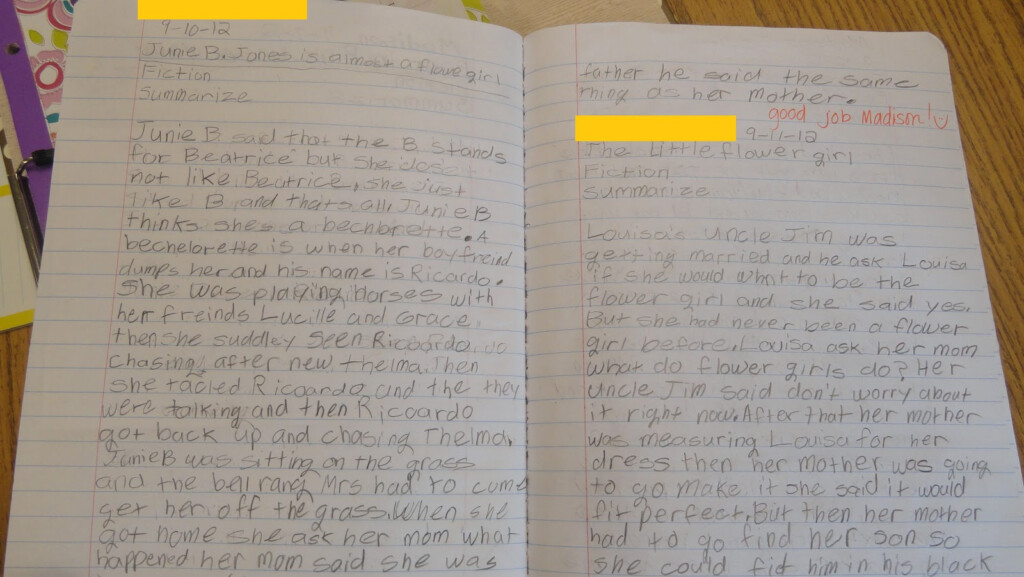 9-10-12
Junie B. Jones is almost a flowe girl
Fiction
Summarize
Junie B said that the B stands
for Beatrice but she dosen't
not like Beatrice, she just
like B and thats all, Junie B
thinks shes a bechbrette. A
bechelorette is when her boyfreind
dumps her and his name is Ricardo.
She was playing horses with
her freinds Lucille and Grace.
then she suddley seen Ricoardo
chasing after new thelma. Then
she tacled Ricoardo and the they
were talking and then Ricoardo
got back up and chasing Thelma.
Junie B was sitting on the grass
and the bell rang Mrs had to come
get her off the grass. When she
got home she ask her mom what
happened her mom said she was
father he said the same
thing as her mother.
good job Madison!
9-11-12
The Little flower girl
Fiction
Summarize
Louisa's Uncle Jim was
getting married and he ask Louisa
if she would whnt to be the
flower girl and she said yes.
But she had never been a flower
girl before. Louisa ask her mom
what do flower girls do? Her
Uncle Jim said don't worry about
it right now. After that her mother
was measuring Louisa for her
dress then her mother was going
to go make it she said it would
fit perfect. But then her mother
had to go find her son so
she could fit him in his black